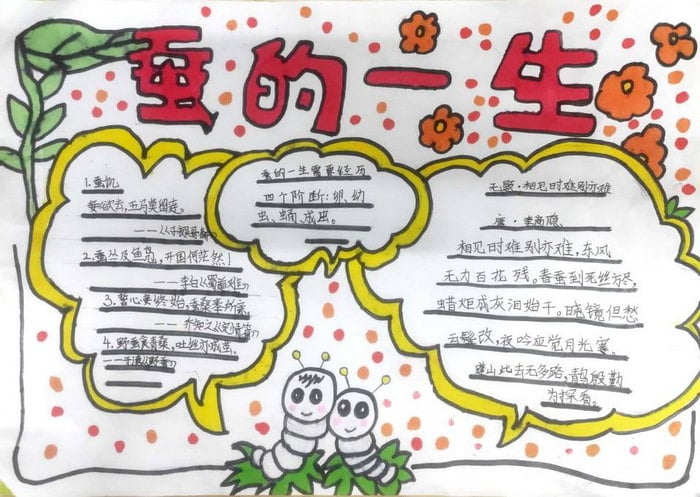 蚕的一生
1.蚕饥
蚕欲去，五马莫留连。
2.蚕丛及鱼凫，开国何茫然！
——李白《蜀道难》
3.誓心妾终始，蚕桑奉所
4.野蚕食青桑，吐丝亦成茧。
——于濆《野蚕》
蚕的一生需要经历
四个阶断：卵、幼
虫、蛹、成虫。
无题·相见时难别亦难
唐·李商隐
相见时难别亦难，东风
无力百花残。春蚕到死丝方尽，
蜡炬成灰泪始干。晓镜但愁
云鬓改，夜吟应觉月光寒。
蓬山此去无多路，青鸟殷勤
为探看。